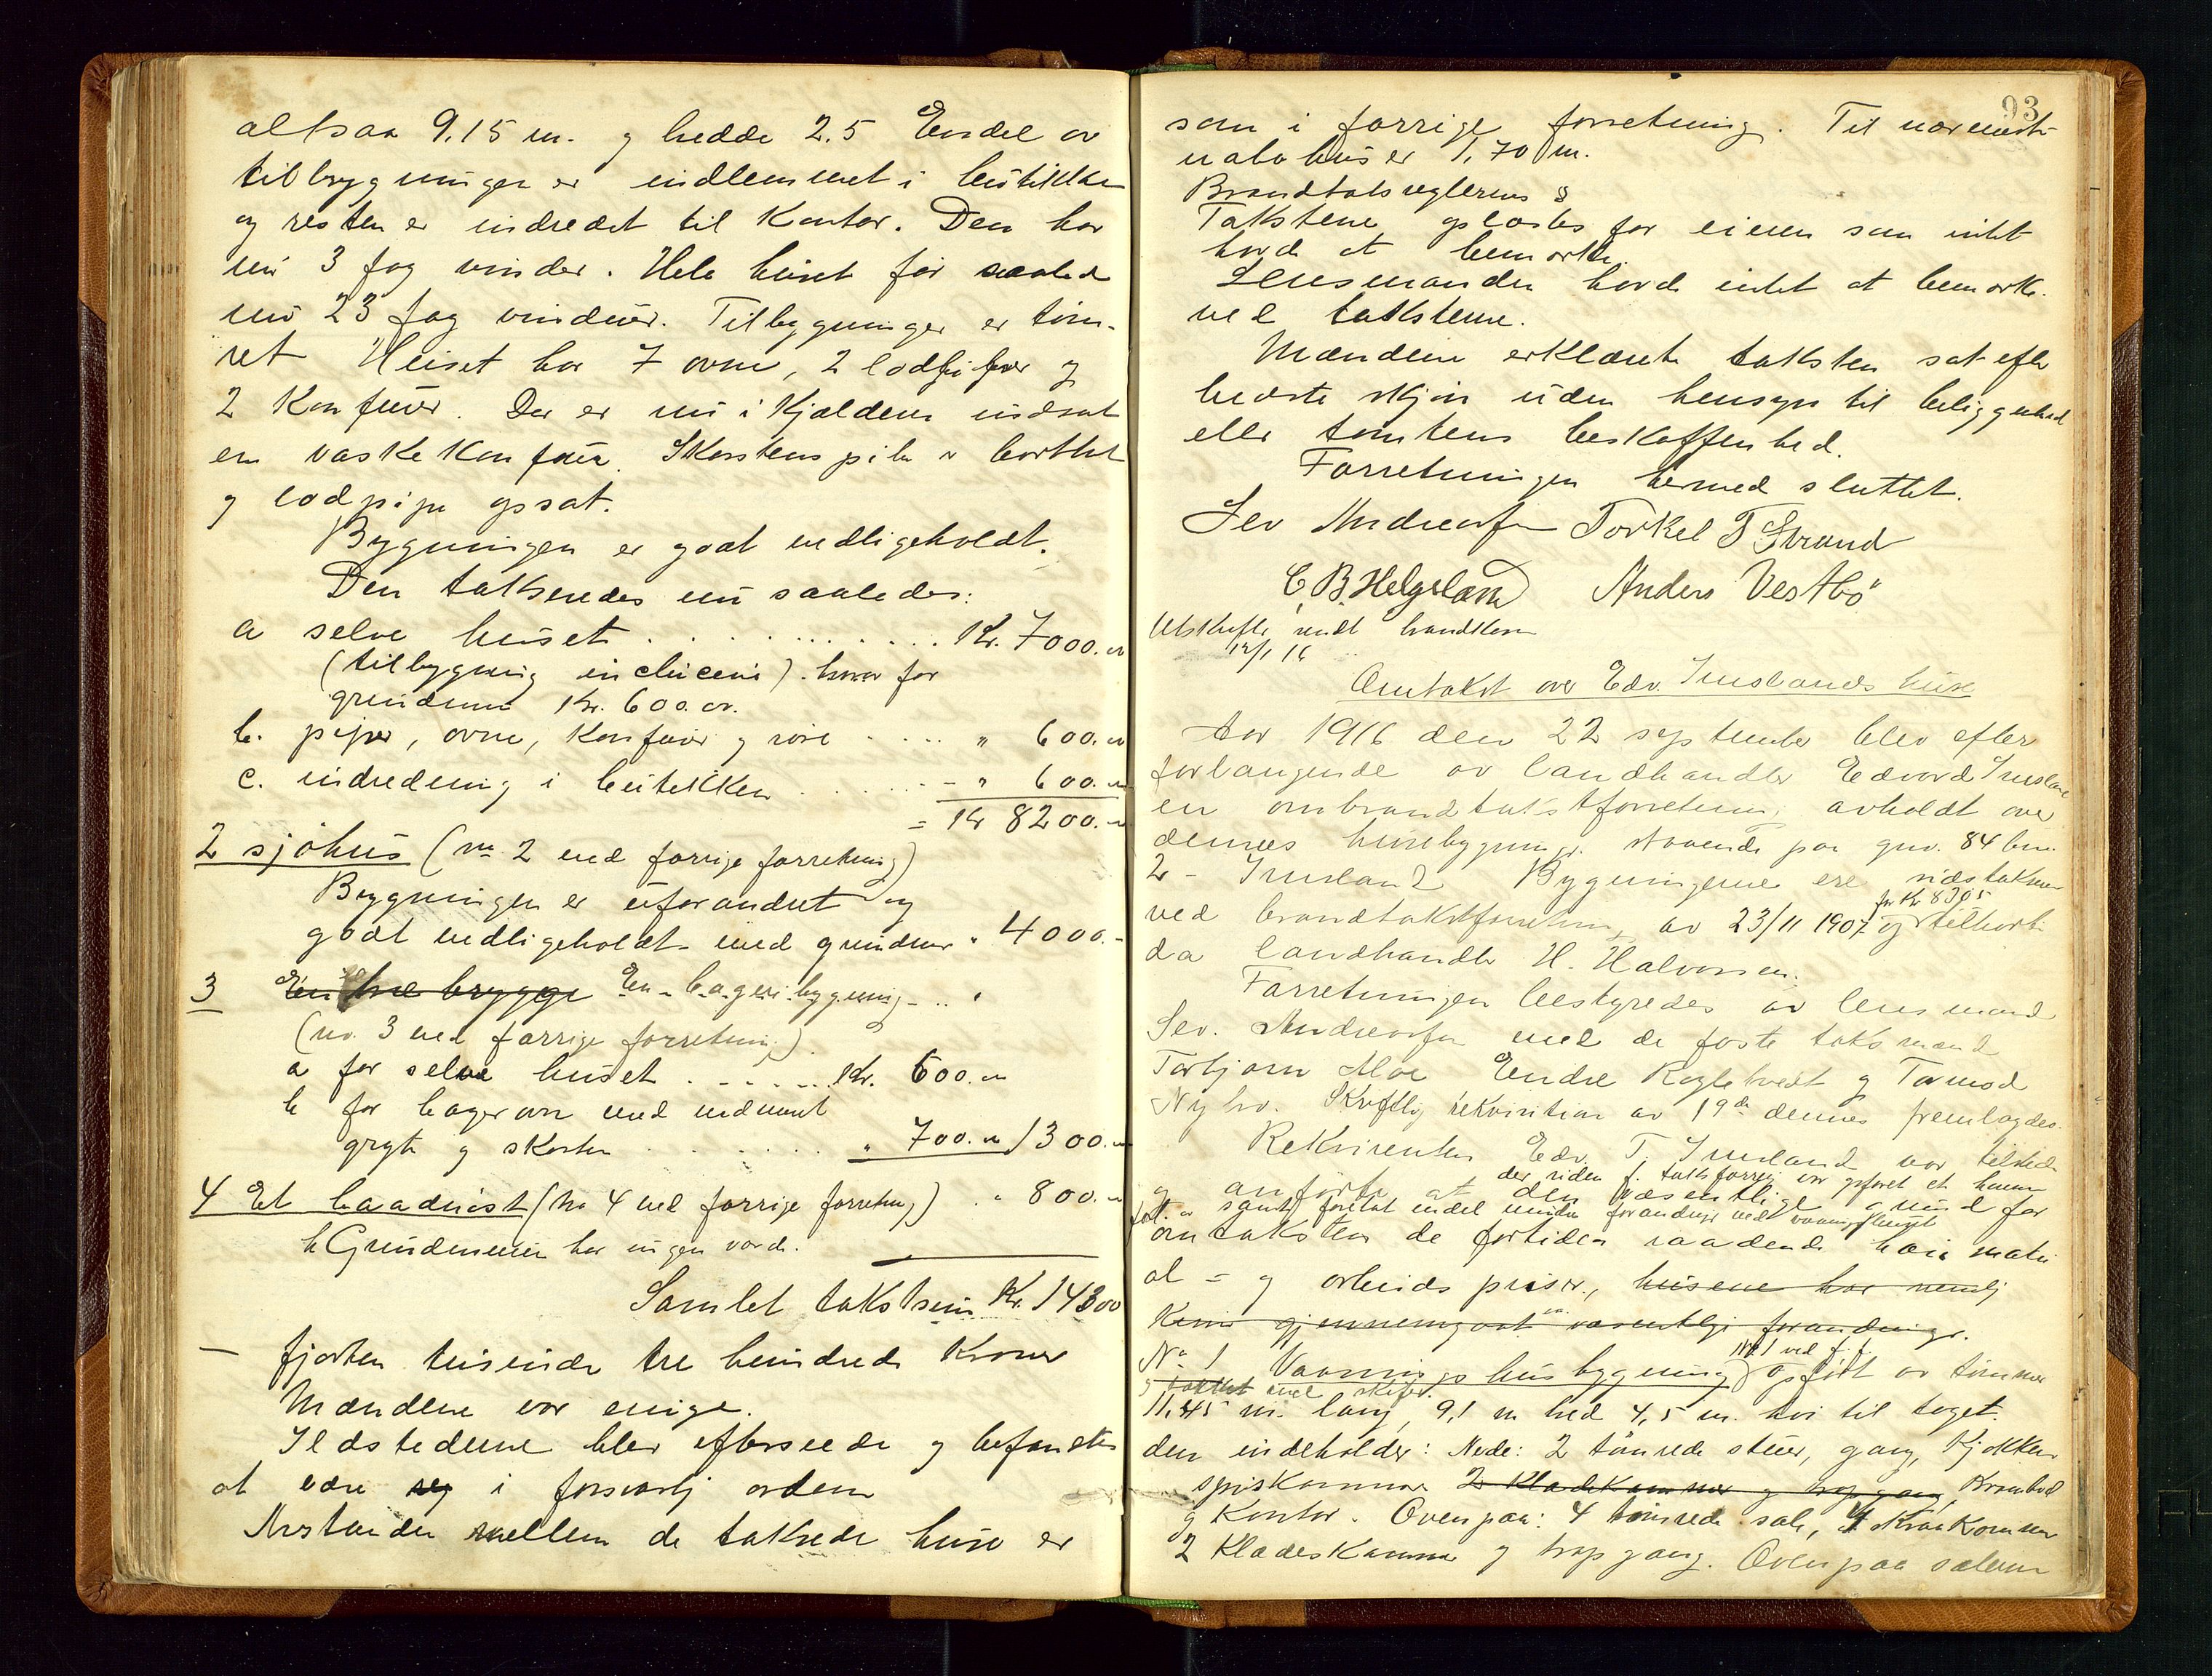 altsaa 9,15 m. og bredde 2.5 Endel av
tilbygningen er indlemmet i butikken
og resten er indredet til Kontor. Den har
nu 3 fag vinduer. Hele huset får saaledes
nu 23 fag vinduer. Tilbygningen er tøm-
ret Huset har 7 ovne, 2 lodpiper og
2 Konfuer. Der er nu i Kjælderen indsat
en vaskekonfuer. Skorstenspibe er borttat
og lodpipe opsat.
Bygningen er godt vedligeholdt.
Den takseredes nu saaledes:
a selve huset . . . . . . . . . . . Kr. 7000.
(tilbygning inclusive) . hvorav for
grundmur Kr. 600.
b. piper, ovne, Konfuer og rør . . . . " 600.
c. indredning i butikken . . . . . . - " 600.
= Kr 8200.
2 sjøhus (nr. 2 ved forrige forretning)
Bygningen er uforandret og
godt vedligeholdt med grundmur " 4000.-
3 En brygge En bageribygning - .. "
(nr. 3 ved forrige forretning).
a for selve huset . . . . . . Kr. 600.
b for bagerovn med indmurt
gryte og skorsten . . . . . . " 700. 1300.
4 Et baadnøst (No 4 ved forrige forretning) . " 800.
b Grundmuren har ingen værdi.
Samlet takstsum Kr. 14300
— fjorten tusinde tre hundrede Kroner
Mændene var enige.
Ildstederne blev efterseede og befandtes
at være i forsvarlig orden
Avstanden mellem de takserede huse er
93
som i forrige forretning. Til nærmeste
nabohus er 1,70 m.
Brandtakstreglernes §
Takstene oplæstes for eieren som intet
havde at bemerke.
Lensmanden havde intet at bemerke
ved taksterne.
Mændene erklærte taksten sat efter
bedste skjøn uden hensyn til beliggenhed
eller tomtens beskaffenhed.
Forretningen hermed sluttet.
Sev Andreassen Torkel T Strand
C. B. Helgeland Anders Vestbø
Utskrifter sendt brandkassen
12/1 16
Omtakst over Edv. Imslands huse
Aar 1916 den 22 september blev efter
forlangende av landhandler Edvard Imsland
en ombrandtakstforretning avholdt over
dennes husebygninger staaende paa gnr. 84 bnr.
2 - Imsland Bygningerne ere sidst takseret
for Kr 8305
ved brandtakstforretning av 23/11 1907 og tilhørte
da landhandler H. Halvorsen.
Forretningen bestyredes av lensmand
Sev. Andreassen med de faste taksmænd
Torbjørn Moe Endre Røgletvedt og Tormod
Nybø. Skriftlig rekvisition av 19de dennes fremlagdes.
Rekvirenten Edv. T. Imsland var tilstede
der siden f. takstforretn var opføret et
og anførte at den væsentlige grund for
samt foretat endel mindre forandringer ved vaaningshuset
omtaksten de fortiden raadende høie mater-
al - og arbeids priser., husene har nemlig
gjennemgaat væsentlige forandringer.
No 1 ved f. f.
No 1 Vaaningshusbygning) opført av tømmer
og taktet med skifer.
11,45 m. lang, 9,1 m bred 4,5 m. høi til taget.
den indeholder: Nede: 2 tømrede stuer, gang, Kjøkken
spiskammer 2 Klædekammer og trapgang, Krambod
og Kontor. Ovenpaa: 4 tømrede sale, 4 Kråkammer
2 Klædeskammer og trapgang. Ovenpaa salerne